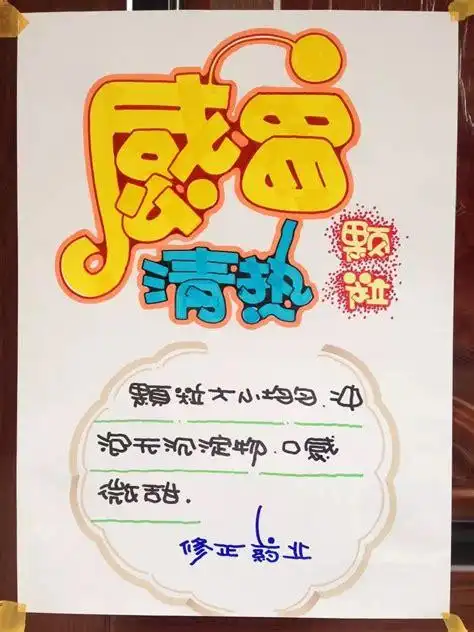 感冒
清热
颗粒
颗粒大小均匀.冲
泡无沉淀物.口感
微甜.
修正药业